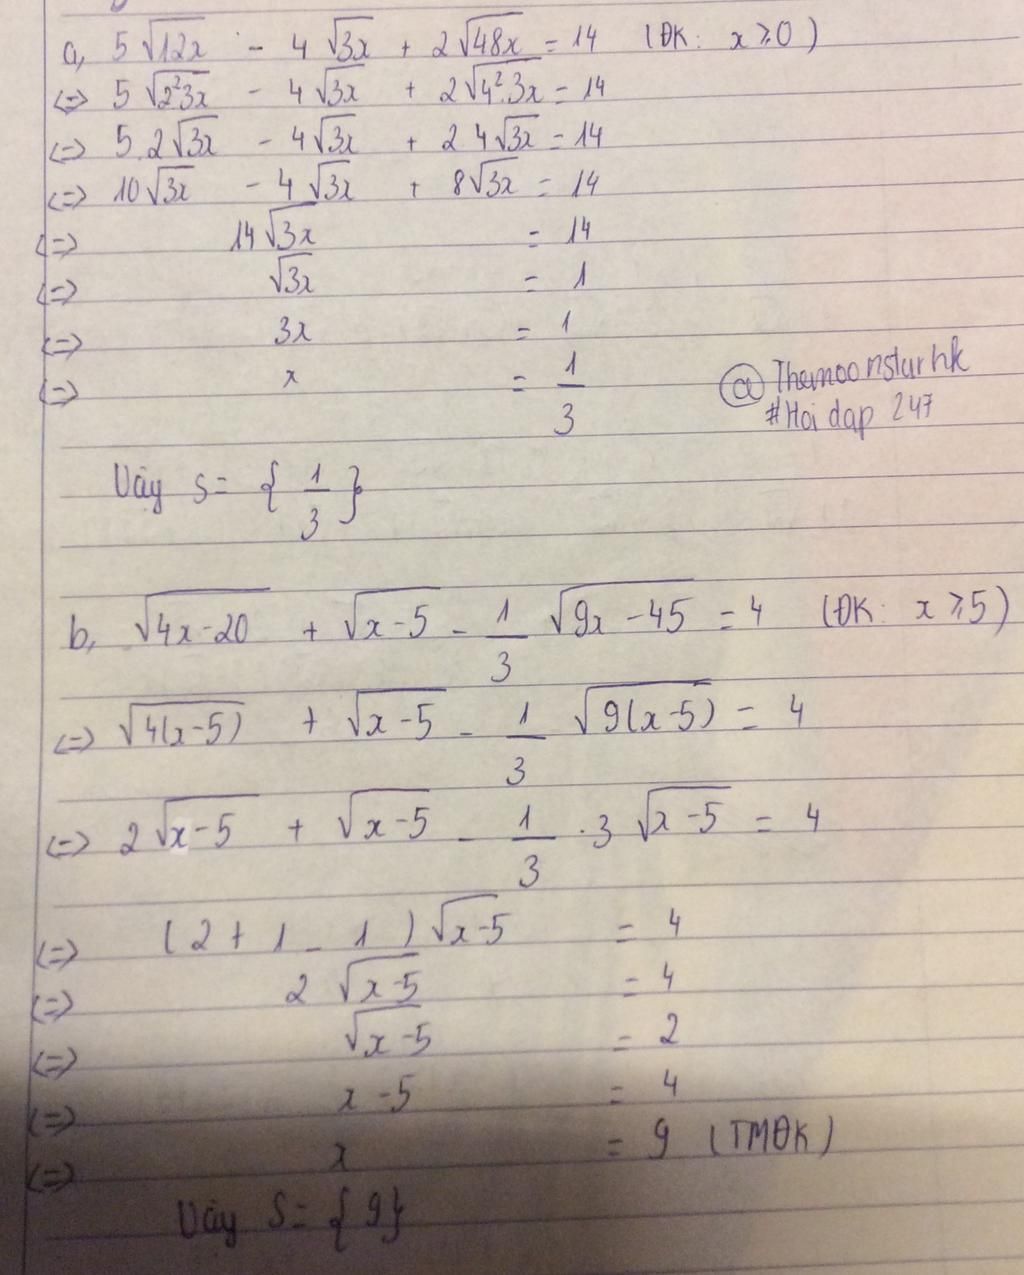 a, 5√12x - 4√3x + 2√48x = 14 (ĐK: x ≥ 0)
<=> 5√2²3x - 4√3x + 2√4².3x = 14
<=> 5.2√3x - 4√3x + 2 4√3x = 14
<=> 10√3x - 4√3x + 8√3x = 14
<=> 14√3x = 14
<=> √3x = 1
<=> 3x = 1
<=> x = 1/3
@ Themoonstarhk
#Hoi dap 247
Vây S = { 1/3 }
b, √4x-20 + √x-5 - 1/3 √9x-45 = 4 (ĐK: x ≥ 5)
<=> √4(x-5) + √x-5 - 1/3 √9(x-5) = 4
<=> 2√x-5 + √x-5 - 1/3 .3 √x-5 = 4
<=> (2 + 1 - 1)√x-5 = 4
<=> 2√x-5 = 4
<=> √x-5 = 2
<=> x-5 = 4
<=> x = 9 (TMĐK)
Vây S = {9}